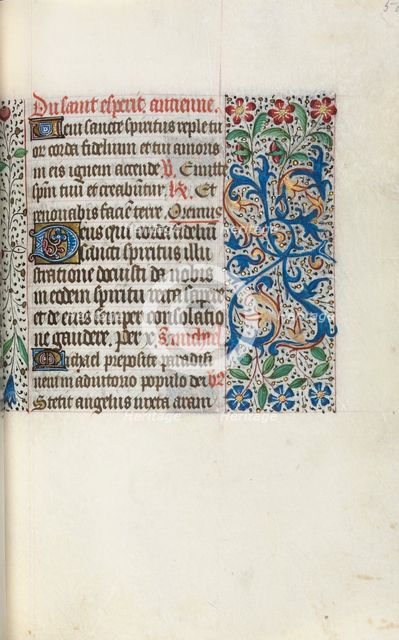 Du saint esperit antienne.
Veni sancte spiritus reple tu
or corda fidelium et tui amoris
in eis ignem accende. V. Emitte
spm tuū et creabūtur. R. Et
renouabis faciē terre. Oremus
Deus qui corda fidelium
sancti spiritus illu
stratione docuisti da nobis
in eodem spiritu recta sapere
et de eius semper consolatio
ne gaudere. Per x. S. michael
Michael preposite paradisi
veni in adiutorio populo dei
Stetit angelus iuxta aram
heritage
Images